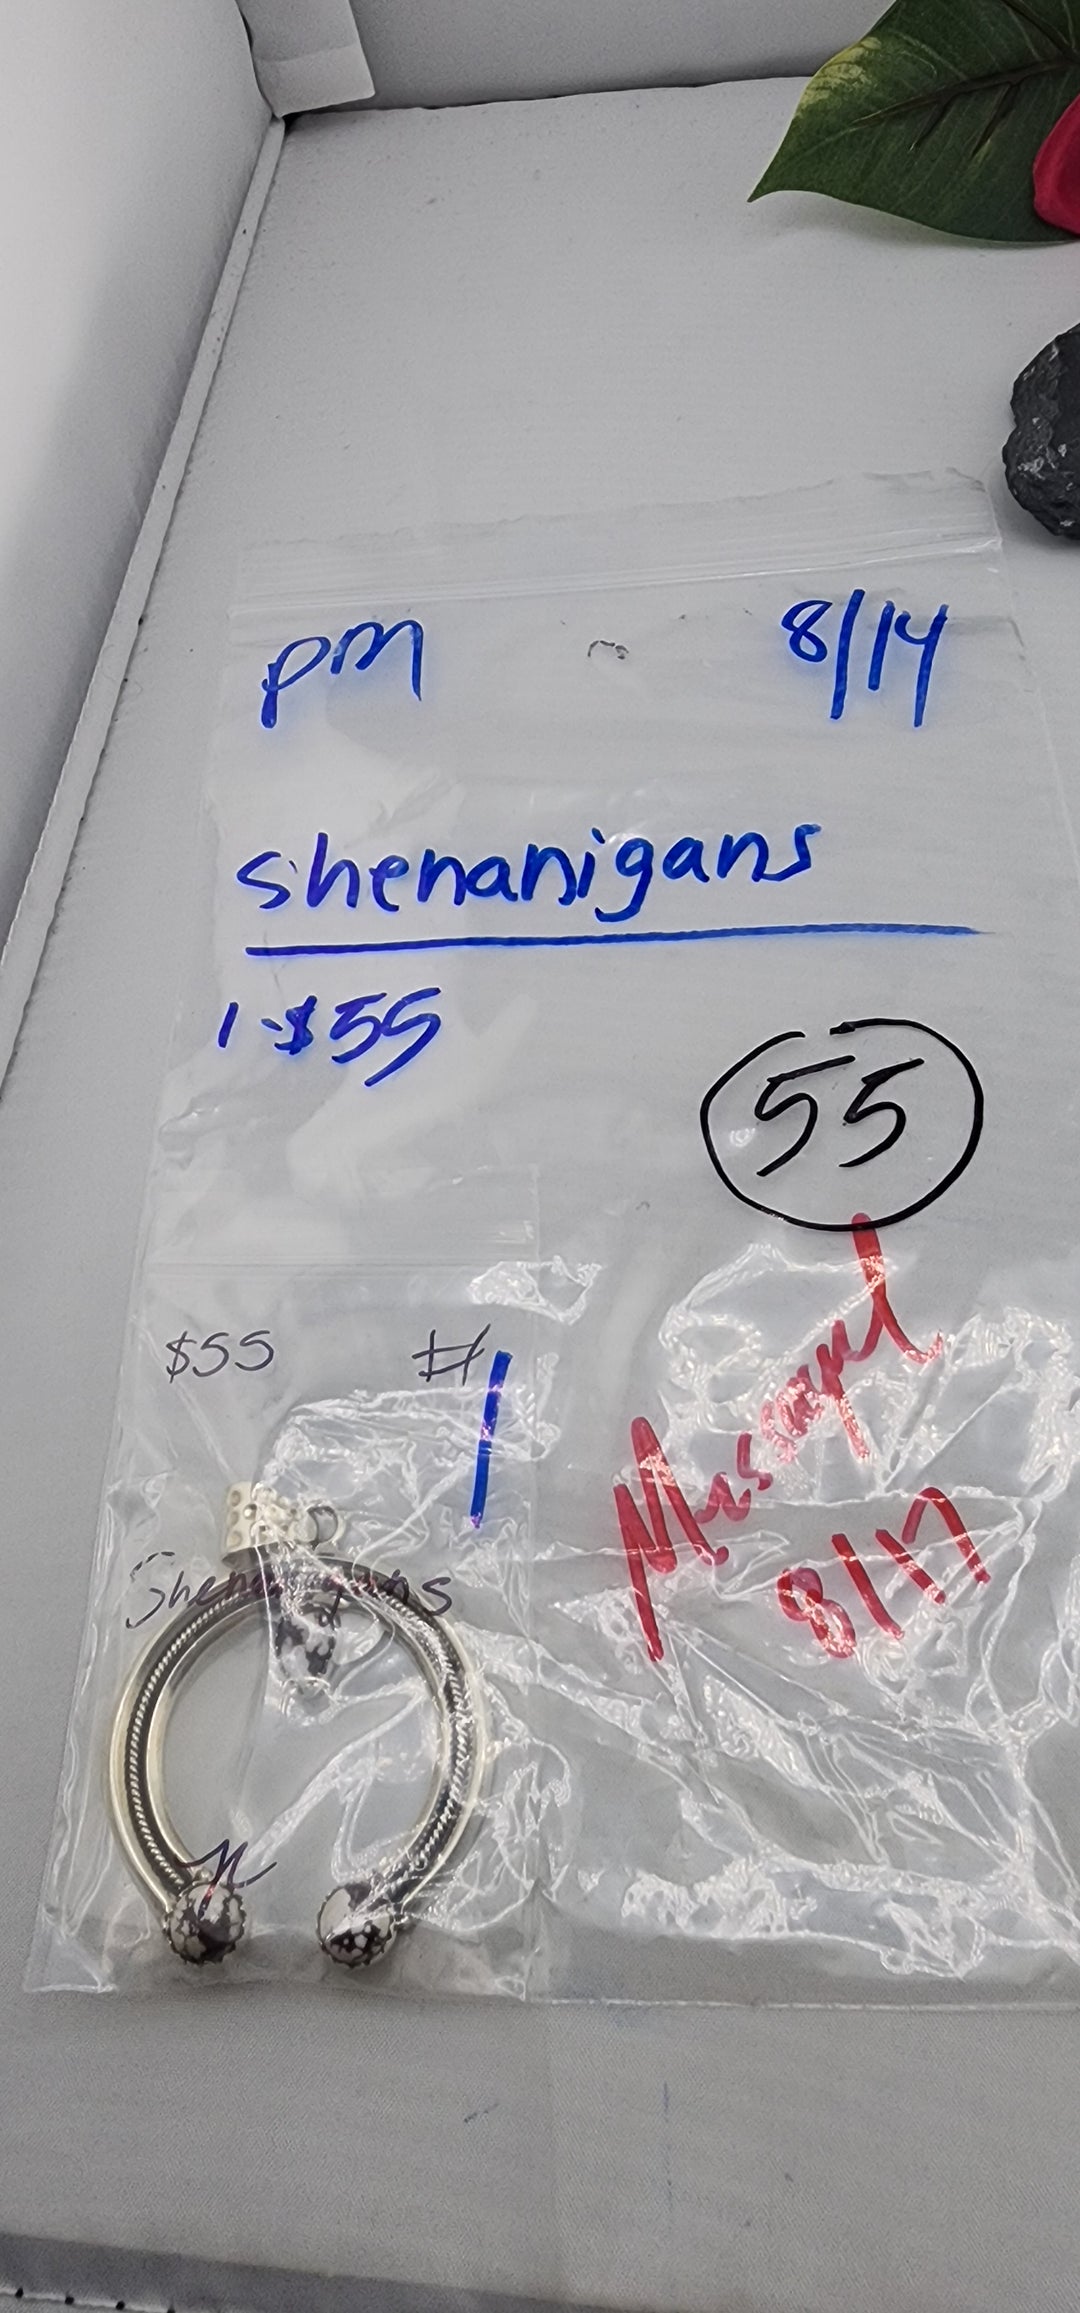 pm 8/14
shenanigans
1-$55
55
$55 #1
Messaged
8/17
Shenanigans